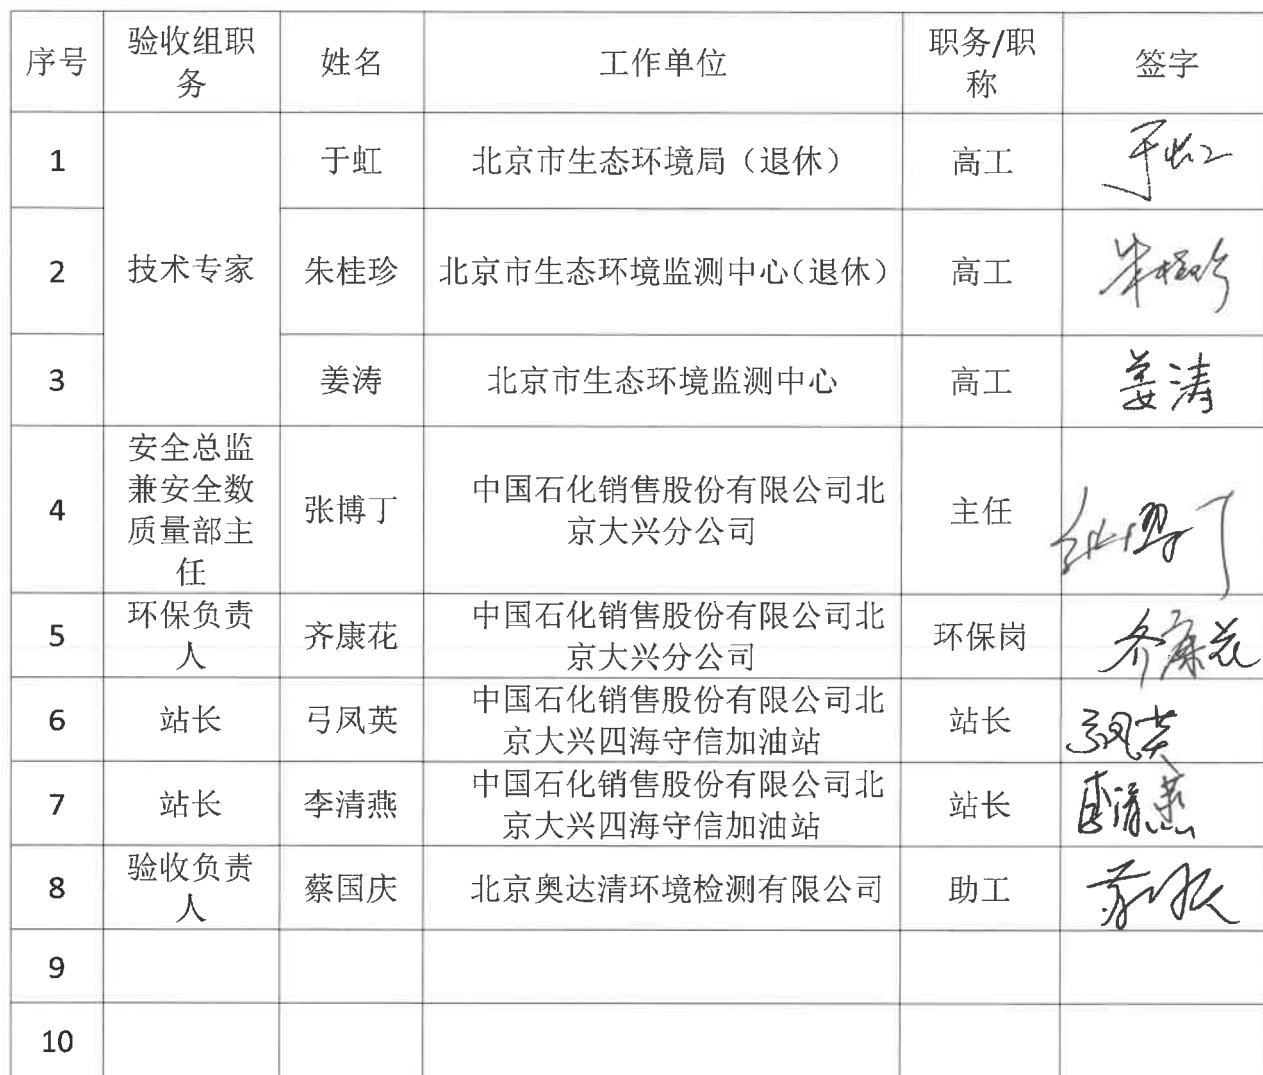 序号 验收组职务 姓名 工作单位 职务/职称 签字
1 技术专家 于虹 北京市生态环境局（退休） 高工 于虹
2 朱桂珍 北京市生态环境监测中心（退休） 高工 朱桂珍
3 姜涛 北京市生态环境监测中心 高工 姜涛
4 安全总监兼安全数质量部主任 张博丁 中国石化销售股份有限公司北京大兴分公司 主任
5 环保负责人 齐康花 中国石化销售股份有限公司北京大兴分公司 环保岗 齐康花
6 站长 弓凤英 中国石化销售股份有限公司北京大兴四海守信加油站 站长 弓凤英
7 站长 李清燕 中国石化销售股份有限公司北京大兴四海守信加油站 站长 李清燕
8 验收负责人 蔡国庆 北京奥达清环境检测有限公司 助工
9
10